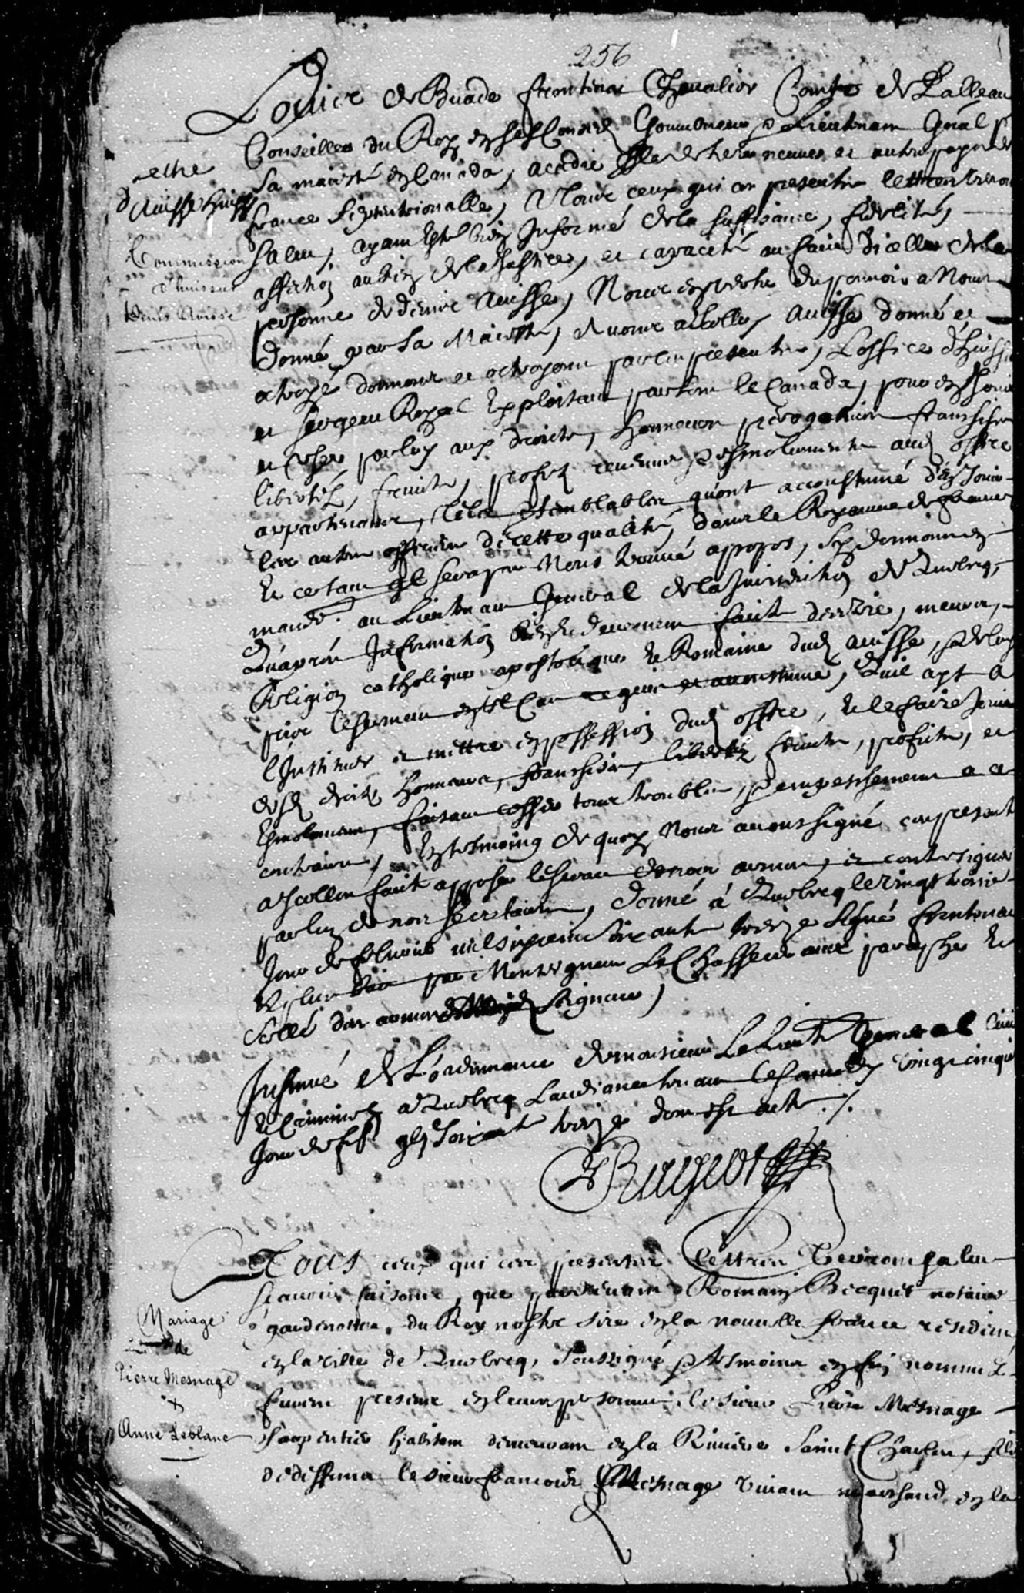 256
Louis de Buade frontenac Chevalier Comte de Palleau
Conseiller du Roy en ses Conseils Gouverneur & Lieutenant Gnal pr
sa majesté en Canada, acadie isle de terre neuve et autres pays de la
france septentrionalle, A tous ceux qui ces presentes lettres verront
Salut, ayant esté bien Informé de la suffisance, fidelité,
affection au bien de la Justice, et capacité au faict d'icelle de la
personne de denis Avisse, Nous en vertu du pouvoir a Nous
donné par Sa Majesté, avons aud. Avisse donné et
octroyé donnons et octroyons par ces presentes, L'office d'huissier
et sergent Royal Exploitant par tout le Canada, pour en Jouir
et user par luy aux droits, honneurs prerogatives franchises
libertés, fruits, profits revenus & esmolumens aud. office
appartenans, tels & semblables quont accoustumé d'en Jouir
les autres officiers de cette qualité, dans le Royaume de france
Et ce tant qil sera par Nous trouvé apropos, Sy donnons en
mandt. au Lieutenant General de la Jurisdiction de Quebecq,
Quaprés Information bien & deuement faicte des vie, meurs,
Religion catholique apostolique & Romaine dud. avisse, & de luy
pris le serment en tel cas requis et accoustumé, Quil ayt a
l'Instituer et mettre en possession dud. office, et le faire Jouir
desd. droits honneurs, franchises, libertés fruits, profits, et
Esmolumens, faisant cesser tous troubles, & empeschemens a ce
contraires, En tesmoing de quoy Nous avons signé ces presentes
a Icelles fait apposer le sceau de nos armes, et contresigner
par l'un de nos secretaires, donné à Quebecq le vingt troisie
Jour de febvrier mil six cens soixante treize Signé frontenac
Et plus bas par Monseigneur Le Chasseur avec paraphe et
scellé des armes de mond. Seigneur,
Insinué de L'ordonnance de monsieur Le Lieutt. General Civil
& Criminel a Quebecq Laudiance tenant le samedy vingt cinqe
Jour de feb. gbj soixante treize dont est acte ./.
RRageot
A Tous ceux qui ces presentes lettres verront salut
scavoir faisons, que pardevant Romain Becquet notaire
gardenottes du Roy nostre sire en la nouvelle france residant
en la ville de Quebecq, soussigné & tesmoins en fin nommez
furent presens en leurs personnes le sieur Pierre Mesnage
charpentier habitant demeurant en la Riviere Saint Charles, fils
de deffunct le sieur francois Mesnage vivant marchand en la
lettre
d'Avisse huissr
Commission
d'huissier
denis Avisse
Mariage
de
Pierre Mesnage
&
Anne Leblanc